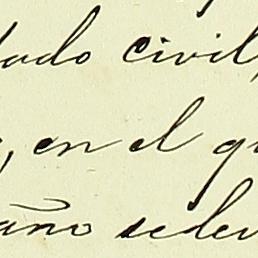 tado civil,
, en el q
año se lev